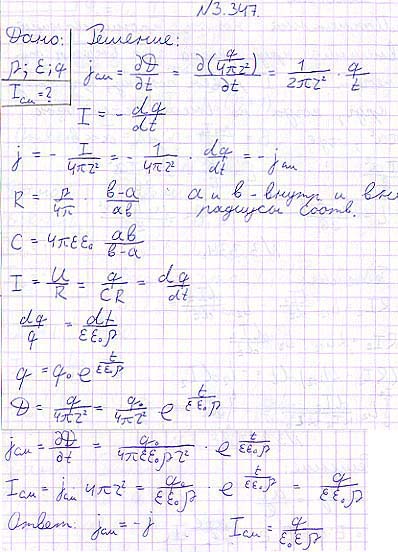 №3.347.
Дано: Решение:
ρ; ε; q
Iсм = ?
jсм = ∂D/∂t = ∂(q/4πr²)/∂t = 1/2πr² · q/t
I = - dq/dt
j = - I/4πr² = - 1/4πr² · dq/dt = - jсм
R = ρ/4π b-a/ab a и b - внутр и вне
радиусы соотв.
C = 4πεε₀ ab/b-a
I = U/R = q/CR = dq/dt
dq/q = dt/εε₀ρ
q = q₀ e^(t/εε₀ρ)
D = q/4πr² = q₀/4πr² e^(t/εε₀ρ)
jсм = ∂D/∂t = q₀/4πεε₀ρr² · e^(t/εε₀ρ)
Iсм = jсм · 4πr² = q₀/εε₀ρ · e^(t/εε₀ρ) = q/εε₀ρ
Ответ: jсм = -j Iсм = q/ε₀ερ